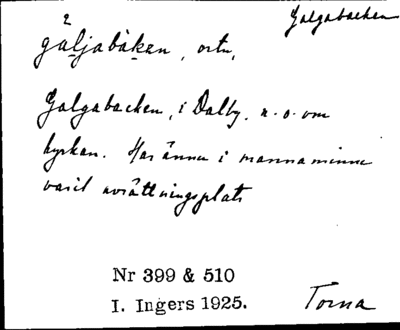 Galgabacken
2
gäljabàkan, ortn,
Galgabacken, i Dalby, n.o. om
kyrkan. Har ännu i mannaminne
varit avrättningsplats
Nr 399 & 510
I. Ingers 1925.
Torna